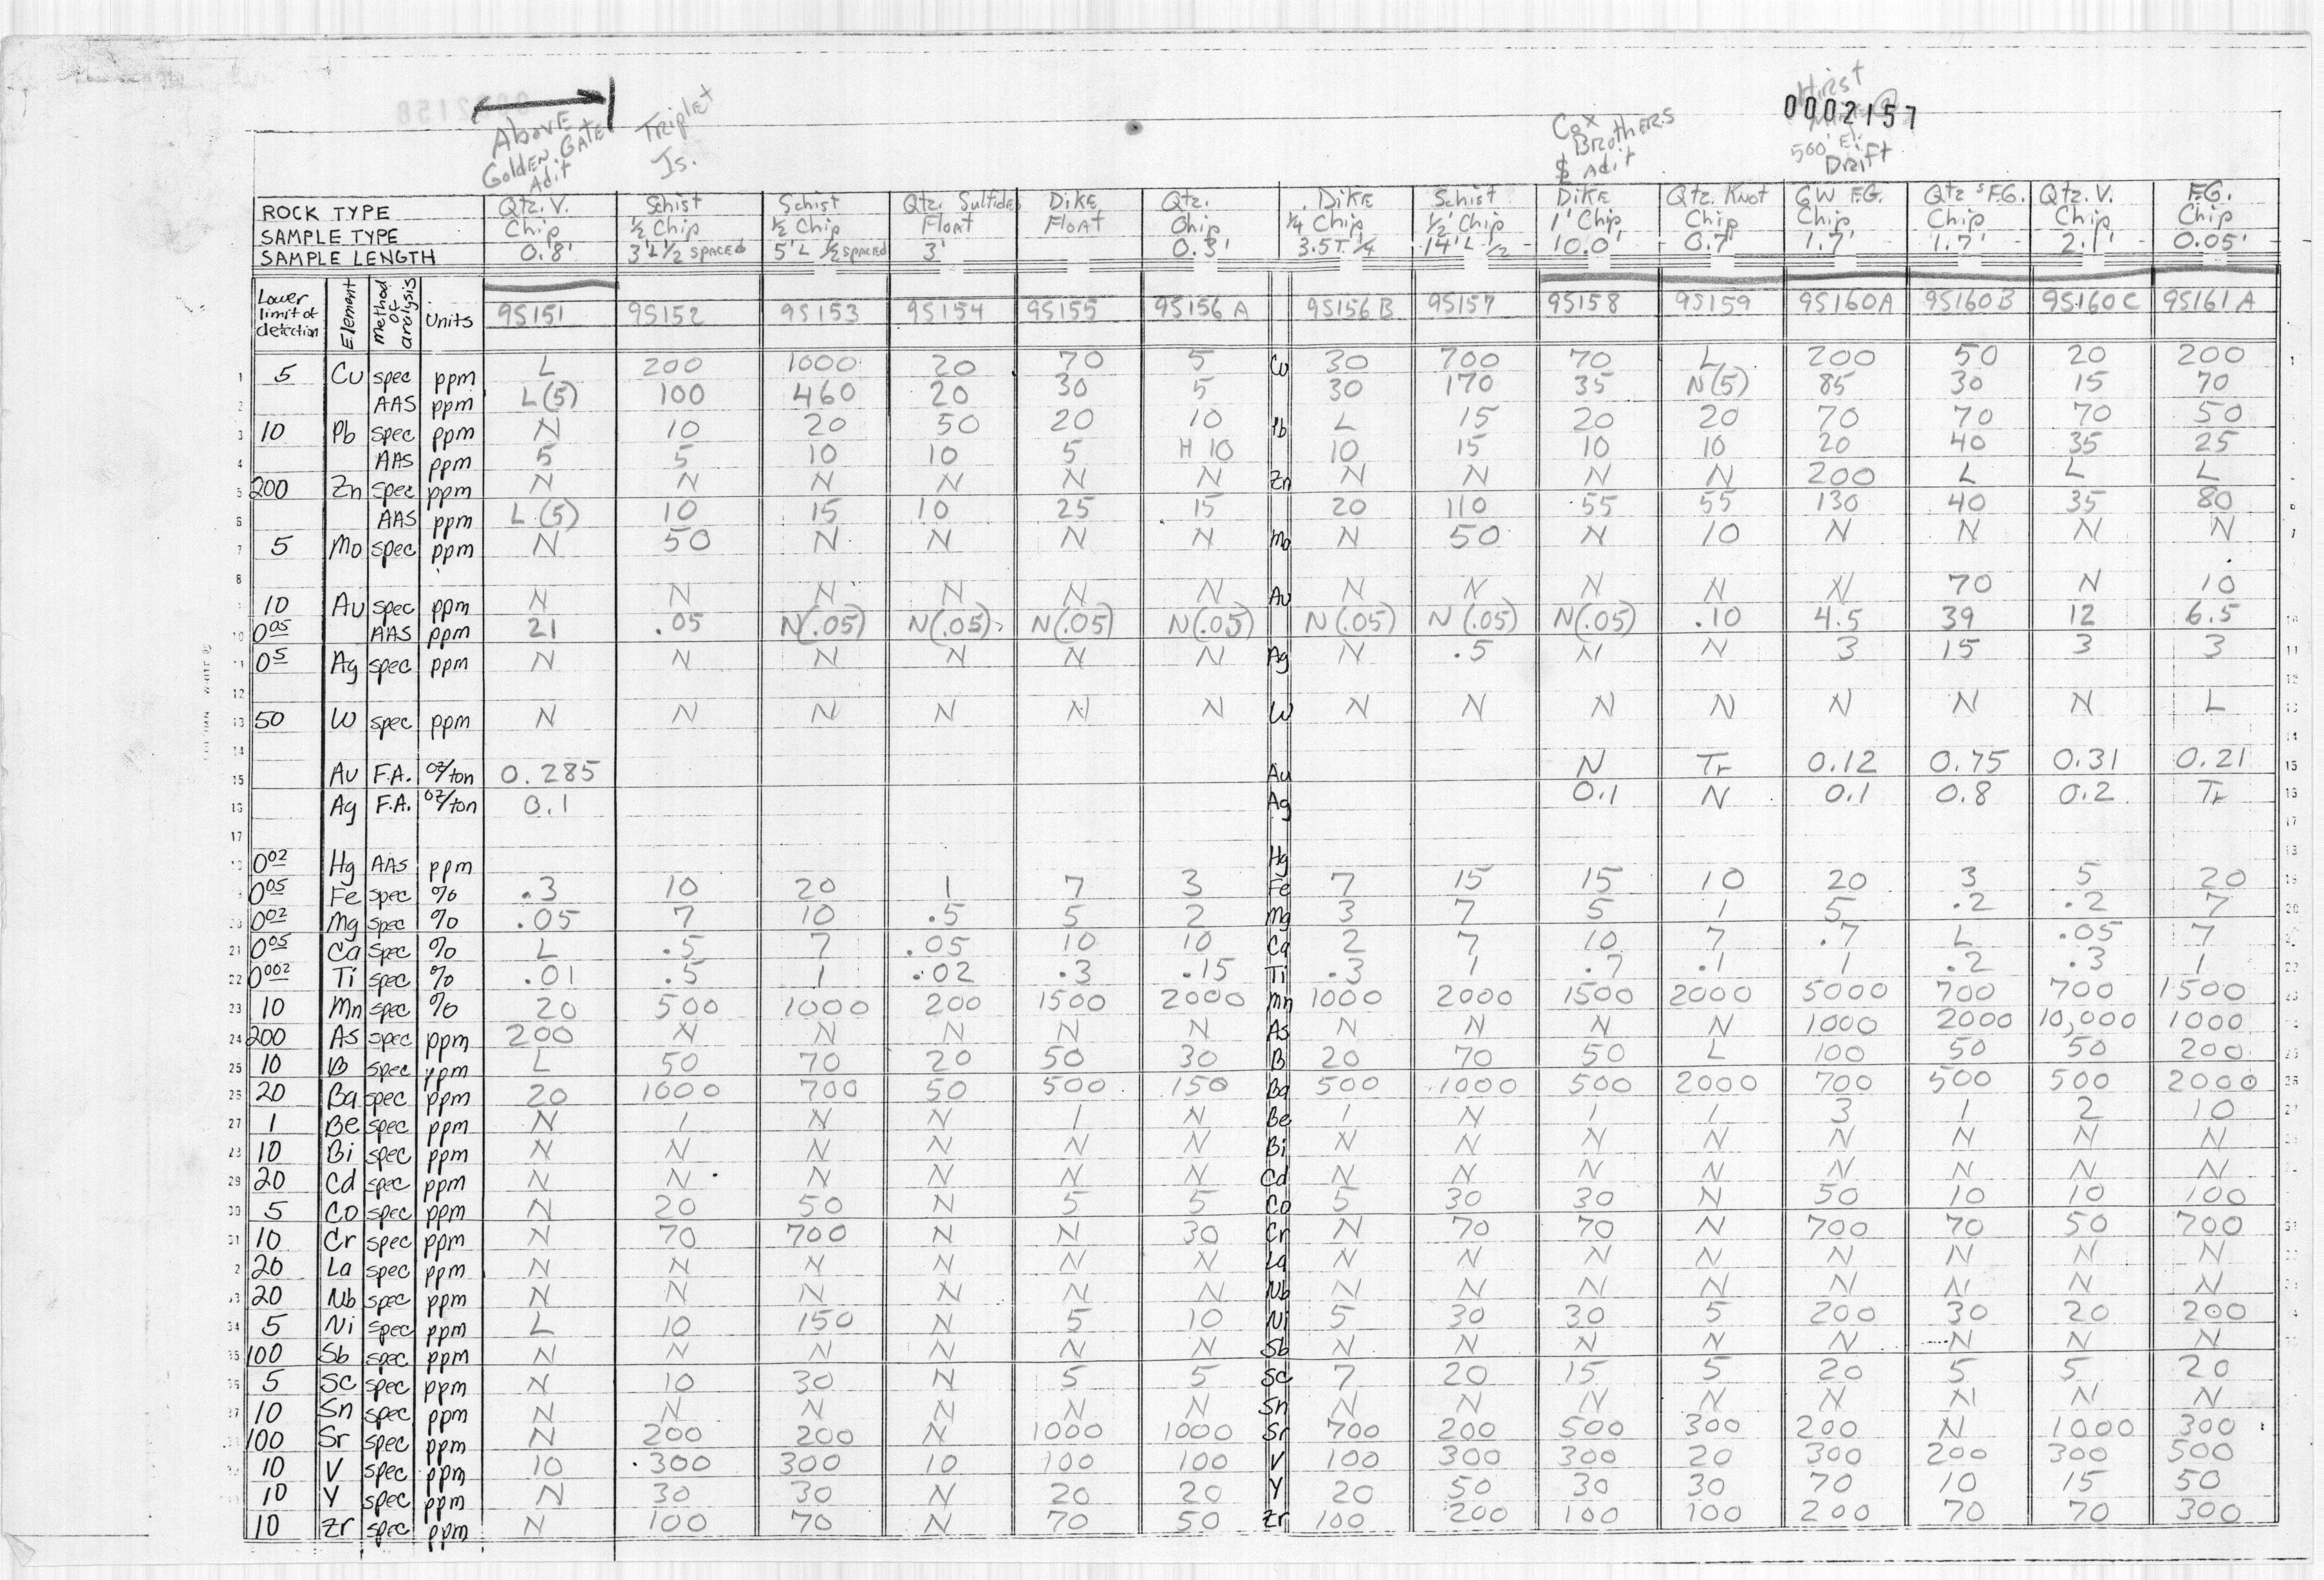 0002157
Above Golden Gate Adit
Triplet Is.
Cox Brothers $ Adit
Hirst
500' El. Drift
ROCK TYPE Qtz. V. Schist Schist Qtz. Sulfides Dike Qtz. Dike Schist Dike Qtz. Knot GW F.G. Qtz F.G. Qtz. V. F.G.
SAMPLE TYPE Chip 1/2 Chip 1/2 Chip Float Float Chip 1/4 Chip 1/2' Chip 1' Chip Chip Chip Chip Chip Chip
SAMPLE LENGTH 0.8' 3'L 1/2 spaced 5'L 1/2 spaced 3' 0.3' 3.5T 1/4 14'L 1/2 10.0' 0.7' 1.7' 1.7' 2.1' 0.05'
Lower limit of detection Element Method of analysis Units 9S151 9S152 9S153 9S154 9S155 9S156A 9S156B 9S157 9S158 9S159 9S160A 9S160B 9S160C 9S161A
1 5 Cu spec ppm L 200 1000 20 70 5 Cu 30 700 70 L 200 50 20 200 1
2 AAS ppm L(5) 100 460 20 30 5 30 170 35 N(5) 85 30 15 70
3 10 Pb spec ppm N 10 20 50 20 10 Pb L 15 20 20 70 70 70 50
4 AAS ppm 5 5 10 10 5 H 10 10 15 10 10 20 40 35 25
5 200 Zn spec ppm N N N N N N Zn N N N N 200 L L L
6 AAS ppm L(5) 10 15 10 25 15 20 110 55 55 130 40 35 80
7 5 Mo spec ppm N 50 N N N N Mo N 50 N 10 N N N N
8
10 Au spec ppm N N N N N N Au N N N N N 70 N 10
10 0.05 AAS ppm 21 .05 N(.05) N(.05) N(.05) N(.05) N(.05) N(.05) N(.05) .10 4.5 39 12 6.5
11 0.5 Ag spec ppm N N N N N N Ag N .5 N N 3 15 3 3 11
12
13 50 W spec ppm N N N N N N W N N N N N N N L 13
14 14
15 Au F.A. oz/ton 0.285 Au N Tr 0.12 0.75 0.31 0.21 15
16 Ag F.A. oz/ton 0.1 Ag 0.1 N 0.1 0.8 0.2 Tr 16
17 17
0.02 Hg AAS ppm Hg 18
0.05 Fe spec % .3 10 20 1 7 3 Fe 7 15 15 10 20 3 5 20 19
20 0.02 Mg spec % .05 7 10 .5 5 2 Mg 3 7 5 1 5 .2 .2 7 20
21 0.05 Ca spec % L .5 7 .05 10 10 Ca 2 7 10 7 .7 L .05 7
22 0.002 Ti spec % .01 .5 1 .02 .3 .15 Ti .3 1 .7 .1 1 .2 .3 1 22
23 10 Mn spec % 20 500 1000 200 1500 2000 Mn 1000 2000 1500 2000 5000 700 700 1500
24 200 As spec ppm 200 N N N N N As N N N N 1000 2000 10,000 1000
25 10 B spec ppm L 50 70 20 50 30 B 20 70 50 L 100 50 50 200 25
26 20 Ba spec ppm 20 1000 700 50 500 150 Ba 500 1000 500 2000 700 500 500 2000 26
27 1 Be spec ppm N 1 N N 1 N Be 1 N 1 1 3 1 2 10 27
28 10 Bi spec ppm N N N N N N Bi N N N N N N N N
29 20 Cd spec ppm N N N N N N Cd N N N N N N N N
30 5 Co spec ppm N 20 50 N 5 5 Co 5 30 30 N 50 10 10 100
31 10 Cr spec ppm N 70 700 N N 30 Cr N 70 70 N 700 70 50 700
20 La spec ppm N N N N N N La N N N N N N N N
20 Nb spec ppm N N N N N N Nb N N N N N N N N
34 5 Ni spec ppm L 10 150 N 5 10 Ni 5 30 30 5 200 30 20 200
35 100 Sb spec ppm N N N N N N Sb N N N N N N N N
36 5 Sc spec ppm N 10 30 N 5 5 Sc 7 20 15 5 20 5 5 20
37 10 Sn spec ppm N N N N N N Sn N N N N N N N N
100 Sr spec ppm N 200 200 N 1000 1000 Sr 700 200 500 300 200 N 1000 300
10 V spec ppm 10 300 300 10 100 100 V 100 300 300 20 300 200 300 500
10 Y spec ppm N 30 30 N 20 20 Y 20 50 30 30 70 10 15 50
10 Zr spec ppm N 100 70 N 70 50 Zr 100 200 100 100 200 70 70 300